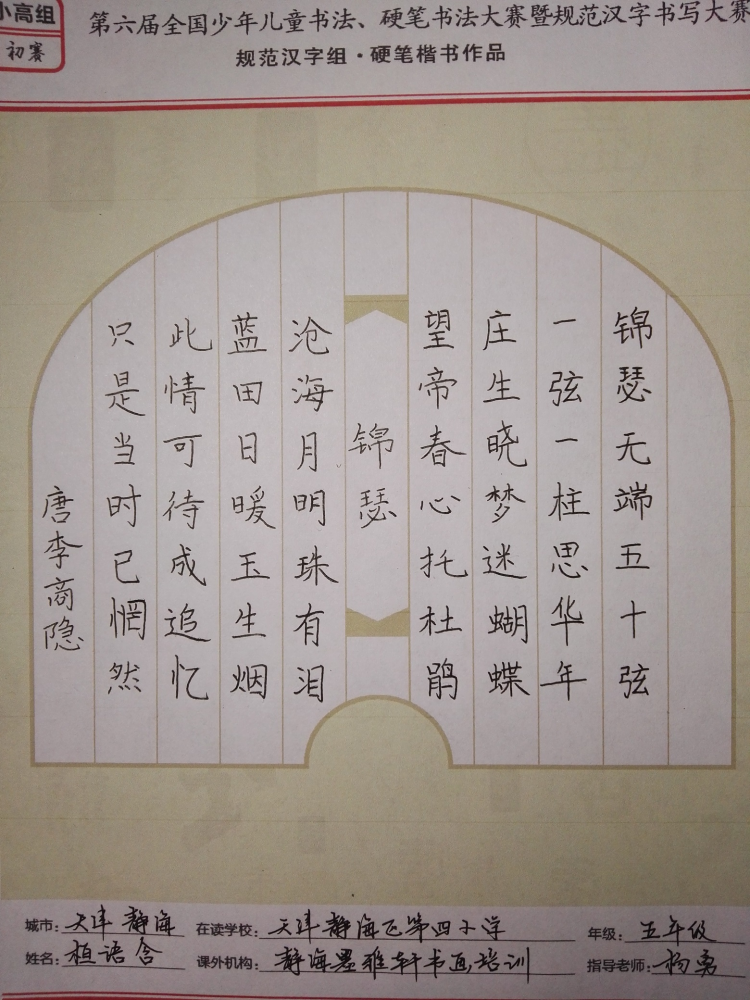 小高组
初赛
第六届全国少年儿童书法、硬笔书法大赛暨规范汉字书写大赛
规范汉字组·硬笔楷书作品
锦瑟无端五十弦
一弦一柱思华年
庄生晓梦迷蝴蝶
望帝春心托杜鹃
锦瑟
沧海月明珠有泪
蓝田日暖玉生烟
此情可待成追忆
只是当时已惘然
唐李商隐
城市：天津 静海 在读学校：天津静海区第四小学 年级：五年级
姓名：植语含 课外机构：静海墨雅轩书画培训 指导老师：杨勇